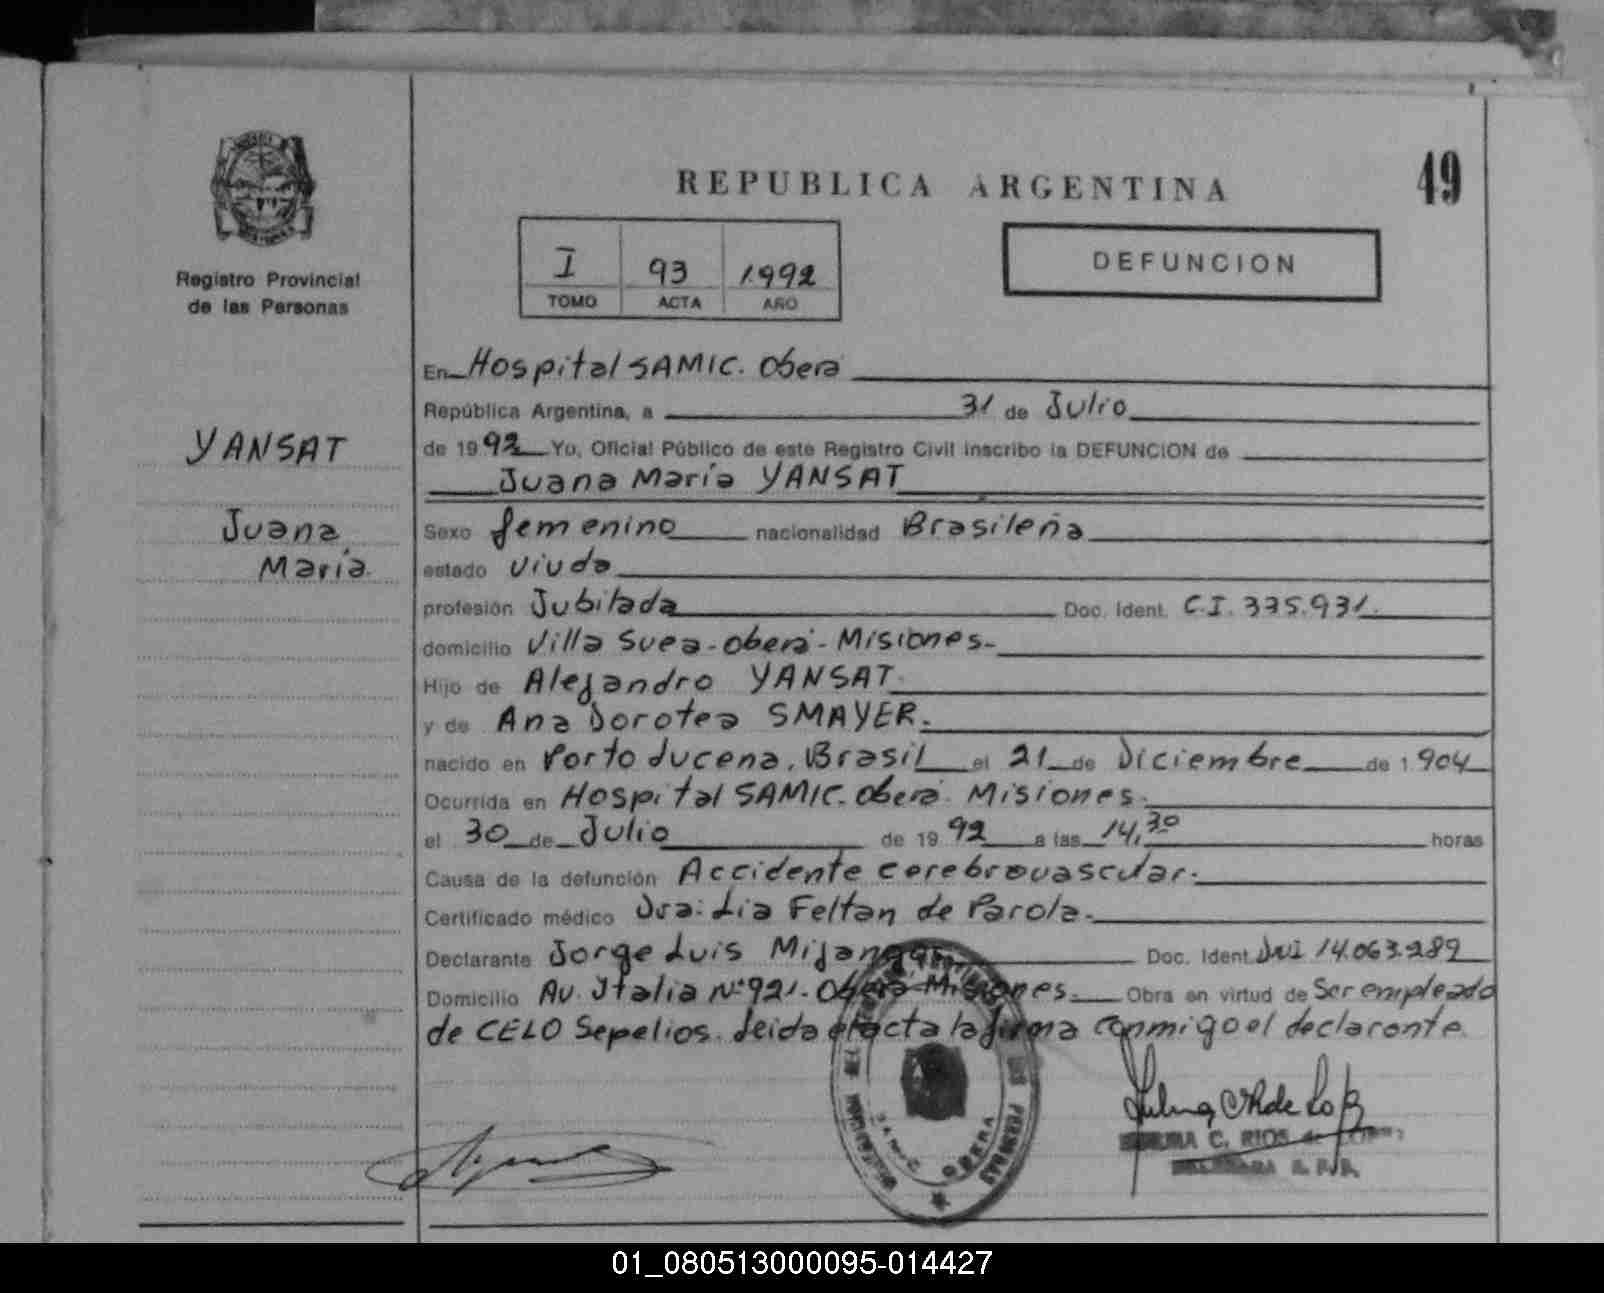 49
REPUBLICA ARGENTINA
Registro Provincial
de las Personas
I 93 1.992
TOMO ACTA AÑO
DEFUNCION
YANSAT
Juana
María
En Hospital SAMIC. Oberá
República Argentina, a 31 de Julio
de 1992 Yo, Oficial Público de este Registro Civil inscribo la DEFUNCION de
Juana María YANSAT
Sexo femenino nacionalidad Brasileña
estado viuda
profesión Jubilada Doc. Ident. C.I. 335.931.
domicilio Villa Svea - Oberá - Misiones.-
Hijo de Alejandro YANSAT.
y de Ana Dorotea SMAYER.
nacido en Porto Lucena, Brasil el 21 de Diciembre de 1.904
Ocurrida en Hospital SAMIC. Oberá. Misiones.
el 30 de Julio de 1992 a las 14,30 horas
Causa de la defunción Accidente cerebrovascular.
Certificado médico Dra: Lia Feltan de Parola.
Declarante Jorge Luis Doc. Ident. DNI 14.063.289
Domicilio Av. Italia Nº 921. Oberá Misiones. Obra en virtud de Ser empleado
de CELO Sepelios. Leida el acta la firma conmigo el declarante.
OBERA
C. RIOS de
01_080513000095-014427